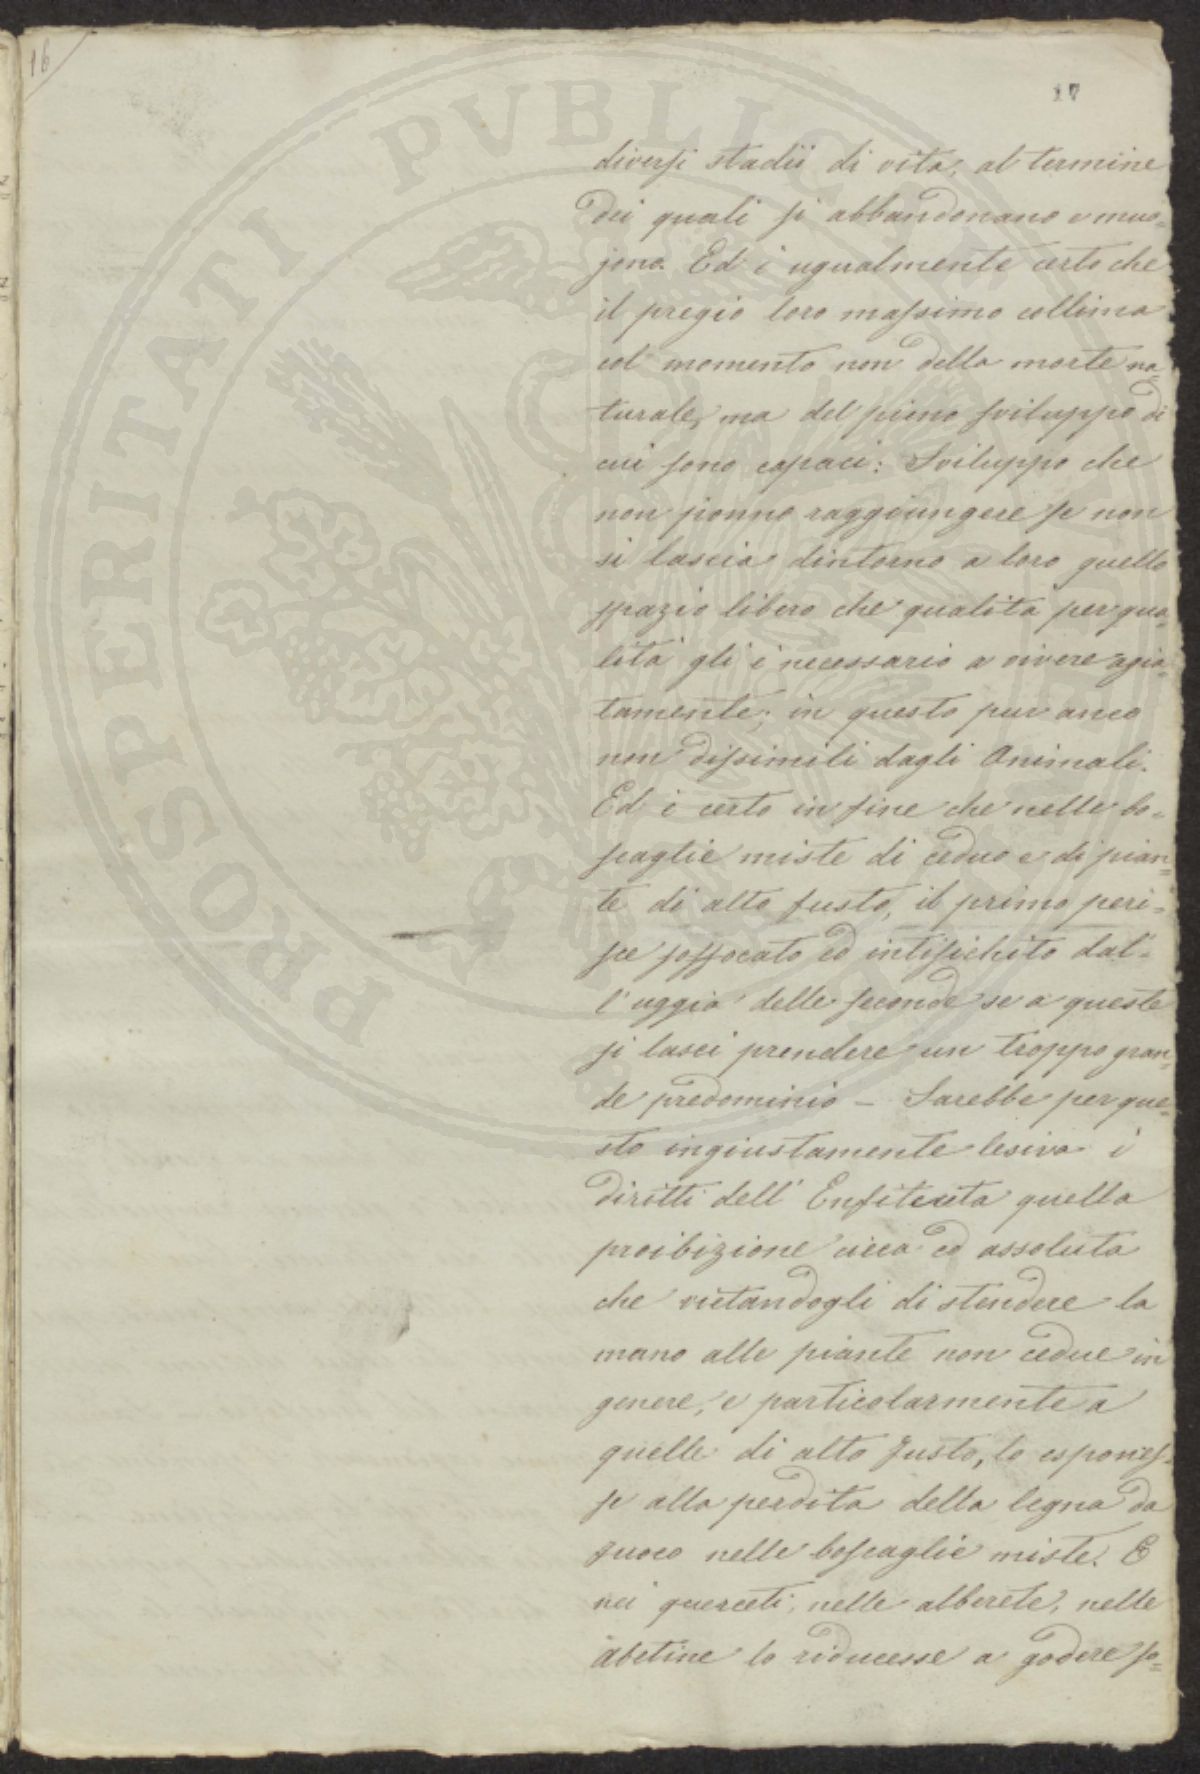 16
17
diversi stadii di vita, al termine
dei quali si abbandonano e muo=
jono. Ed è ugualmente certo che
il pregio loro massimo collima
col momento non della morte na=
turale, ma del pieno sviluppo di
cui sono capaci: Sviluppo che
non ponno raggiungere se non
si lascia dintorno a loro quello
spazio libero che qualità per qua=
lità gli è necessario a vivere agia=
tamente; in questo pur anco
non dissimili dagli Animali.
Ed è certo in fine che nelle bo=
scaglie miste di ceduo e di pian=
te di alto fusto, il primo peri=
sce soffocato ed intisichito dal=
l'uggia delle seconde se a queste
si lasci prendere un troppo gran=
de predominio – Sarebbe per que=
sto ingiustamente lesiva i
diritti dell' Enfiteuta quella
proibizione cieca ed assoluta
che vietandogli di stendere la
mano alle piante non cedue in
genere, e particolarmente a
quelle di alto fusto, lo espones=
se alla perdita della legna da
fuoco nelle boscaglie miste. E
nei querceti, nelle alberete, nelle
abetine lo riducesse a godere so=
PROSPERITATI PVBLICAE